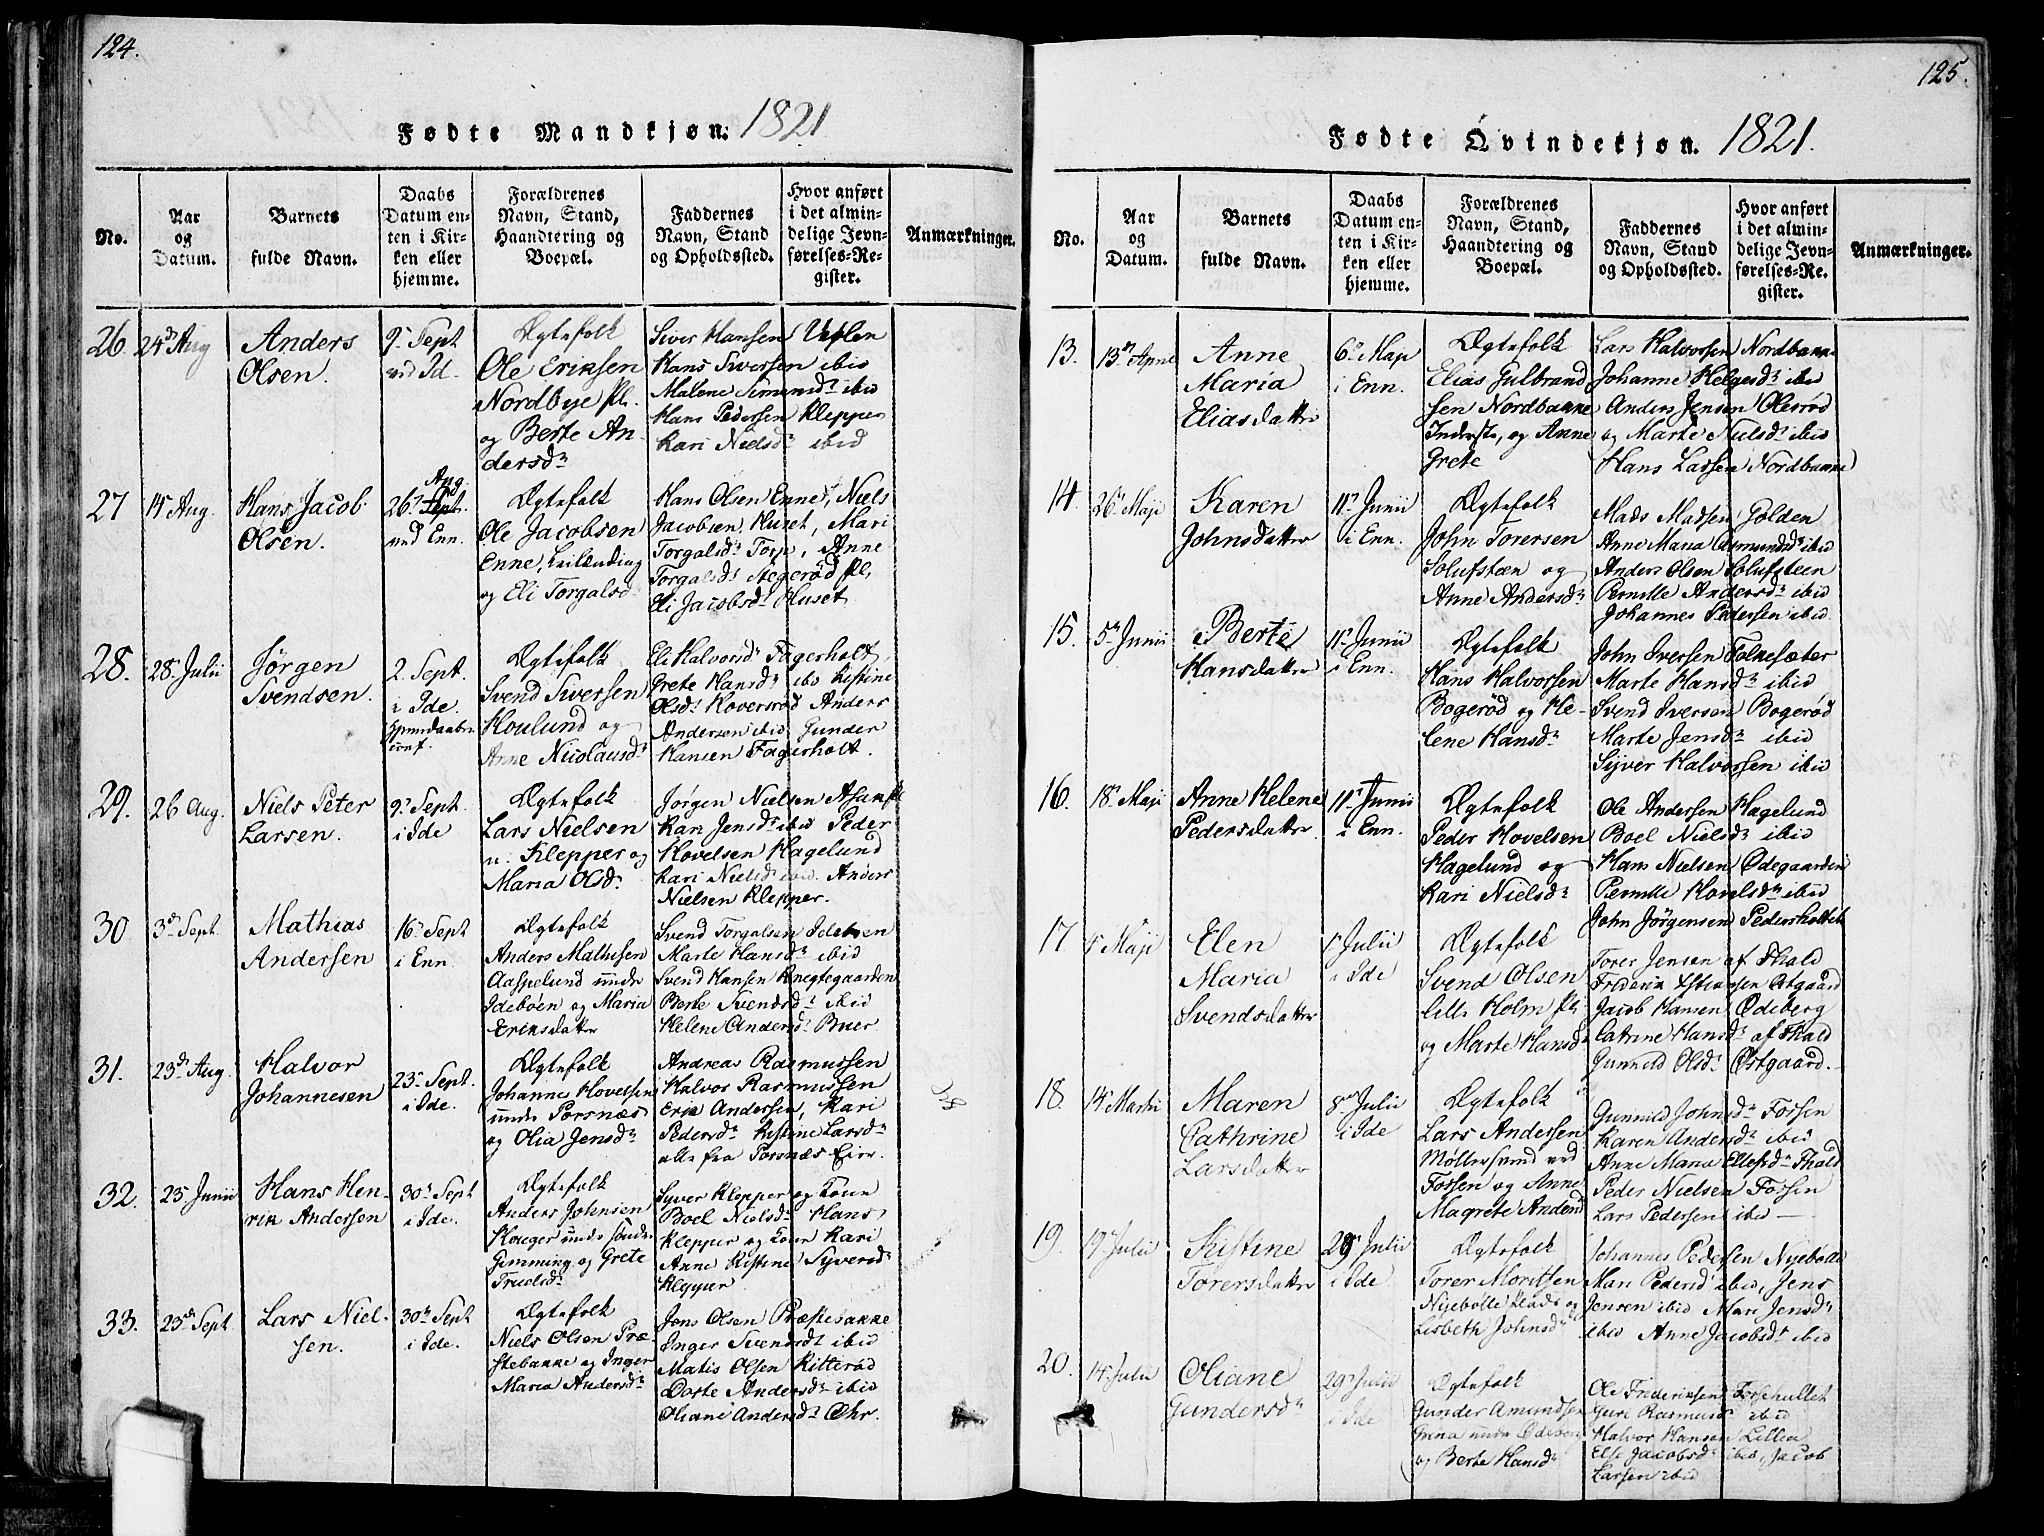 124.
Fødte Mandkjøn: 1821
No.
Aar
og
Datum.
Barnets
fulde Navn.
Daabs
Datum en-
ten i Kir-
ken eller
hjemme.
Forældrenes
Navn, Stand,
Haandtering og
Boepæl.
Faddernes
Navn, Stand
og Opholdssted.
Hvor anført
i det almin-
delige Jevn-
førelses-Re-
gister.
Anmærkninger.
26
24de Aug
Anders
Olsen.
9. Sept
ved Id.
Ægtefolk
Ole Eriksen
Nordbye pl.
og Berte An-
dersdr
Siver Hansen Veslen
Hans Siversen ibid
Malene Simensdr ibid
Hans Pedersen Klepper
Kari Nielsdr ibid
27
14 Aug.
Hans Jacob
Olsen.
Aug.
26. Sept.
ved Enn.
Ægtefolk
Ole Jacobsen
Enne, Leilænding
og Eli Torgalsd.
Hans Olsen Enne, Niels
Jacobsen Huset, Mari
Torgalsdr Torp, Anne
Torgalsdr Stegerød pl,
Eli Jacobsdr Huset
28.
28. Julii
Jørgen
Svendsen.
2. Sept.
i Ide.
Ægtefolk
Svend Siversen
Houlund og
Anne Nicolausdr
Eli Halvorsdr Fagerholt,
Grete Hansdr ibid Kistine
Olsdr Hoversrød Anders
Andersen ibid Gunder
Hansen Fagerholt.
29.
26 Aug.
Niels Peter
Larsen.
9. Sept.
i Ide
Ægtefolk
Lars Nielsen
u. Klepper og
Maria Olsdr
Jørgen Nielsen Asak pl
Kari Jensdr ibid Peder
Hovelsen Hagelund
Kari Nielsdr ibid. Anders
Nielsen Klepper.
30
3de Sept.
Mathias
Andersen
16. Sept
i Enn
Ægtefolk
Anders Mathisen
Aaspelund unde
Idebøen og Maria
Eriksdatter
Svend Torgalsen Idebøen
Marte Hansdr ibid
Svend Hansen Knegtegaarden
Berte Svendsdr ibid
Helene Andersdr Buer
31.
23de Aug.
Halvor
Johannesen
23de Sept.
i Ide.
Ægtefolk
Johannes Hovelsen
unde Porsnæs
og Olia Jensdr
Andreas Rasmussen
Halvor Rasmussen
Erik Andersen, Kari
Pedersdr Kistine Larsdr
alle fra Porsnæs Eier.
32.
25 Junii
Hans Hen-
rik Andersen
30. Sept
i Ide.
Ægtefolk
Anders Johnsen
Kouger unde sønder
Gimming og Grete
Truelsdr
Syver Klepper og Kone
Boel Nielsdr Hans
Klepper og Kone Kari
Anne Kistine Syversdr
Klepper
33.
23de Sept
Lars Niel-
sen.
30. Sept
i Ide.
Ægtefolk
Niels Olsen Præ-
stebakke og Inger
Maria Andersdr
Jens Olsen Præstebakke
Inger Svendsdt ibid
Matis Olsen Kitterød
Dorte Andersdr ibid
Oliane Andersdr Ohr.
125.
Fødte Qvindekjøn. 1821.
No.
Aar
og
Datum.
Barnets
fulde Navn.
Daabs
Datum en-
ten i Kir-
ken eller
hjemme.
Forældrenes
Navn, Stand,
Haandtering og
Boepæl.
Faddernes
Navn, Stand
og Opholdssted.
Hvor anført
i det almin-
delige Jevn-
førelses-Re-
gister.
Anmærkninger.
13.
Anne
Maria
Eliasdatter
6. Maji
i Enn.
Ægtefolk
Elias Gulbrand
sen Nordbakke
Inderste, og Anne
Grete
Lars Halvorsen Nordbakke
Johanne Helgesdr ibid
Anders Jensen Olesrød
og Marte Nielsdr ibid
Hans Larsen Nordbakke
14.
26. Maji
Karen
Johnsdatter
11. Junii
i Enn.
Ægtefolk
John Torersen
Solufstæn og
Anne Andersdr
Mads Madsen Golden
Anne Maria Osmundsdr ibid
Anders Olsen Solufsteen
Pernille Andersdr ibid
Johannes Pedersen ibid
15.
5. Junii
Berte
Hansdatter
11. Junii
i Enn.
Ægtefolk
Hans Halvorsen
Bogerød og He-
lene Hansdr
John Iversen Folkesæter
Marte Hansdr ibid
Svend Iversen Bogerød
Marte Jensdr ibid
Syver Halvorsen ibid
16.
18. Maji
Anne Helene
Pedersdatter
11. Junii
i Enn.
Ægtefolk
Peder Hovelsen
Hagelund og
Kari Nielsdr
Ole Andersen Hagelund
Boel Nielsdr ibid
Hans Nielsen Ødegaarden
Pernille Hovelsdr ibid
John Jørgensen Pedersholtet
17
1. Maji
Elen
Maria
Svendsdatter
1. Julii
i Ide
Ægtefolk
Svend Olsen
Lille Holm pl.
og Marte Hansd.
Torer Jensen af Thald
Friderik Østgaard
Jacob Hansen Ødeberg
Catrine Hansdr af Thald
Gunnild Olsdr Østgaard.
18.
14. Martii
Maren
Cathrine
Larsdatter
8. Julii
i Ide
Ægtefolk
Lars Andersen
Møllersund ved
Fossen og Anne
Magrete Andersd
Gunnild Johnsdr Fossen
Karen Andersdr ibid
Anne Maria Ellefsdr Thald
Peder Nielsen Fossen
Lars Pedersen ibid
19.
19. Julii
Kistine
Torersdatter
29. Julii
i Ide
Ægtefolk
Torer Moritsen
Nyebølle plads og
Lisbeth Johnsdr
Johannes Pedersen Nyebølle
Mari Pedersdr ibid, Jens
Jensen ibid Mari Jensdr
ibid Anne Jacobsdr ibid
20.
14. Julii
Oliane
Gundersdr
29. Julii
i Ide
Ægtefolk
Gunder Amundsen
unde Ødeberg
og Berte Hansdr
Ole Frideriksen Forsehullet
Guri Rasmusdr ibid
Halvor Hansen Lillea
Else Jacobsdr ibid, Jacob
Larsen ibid